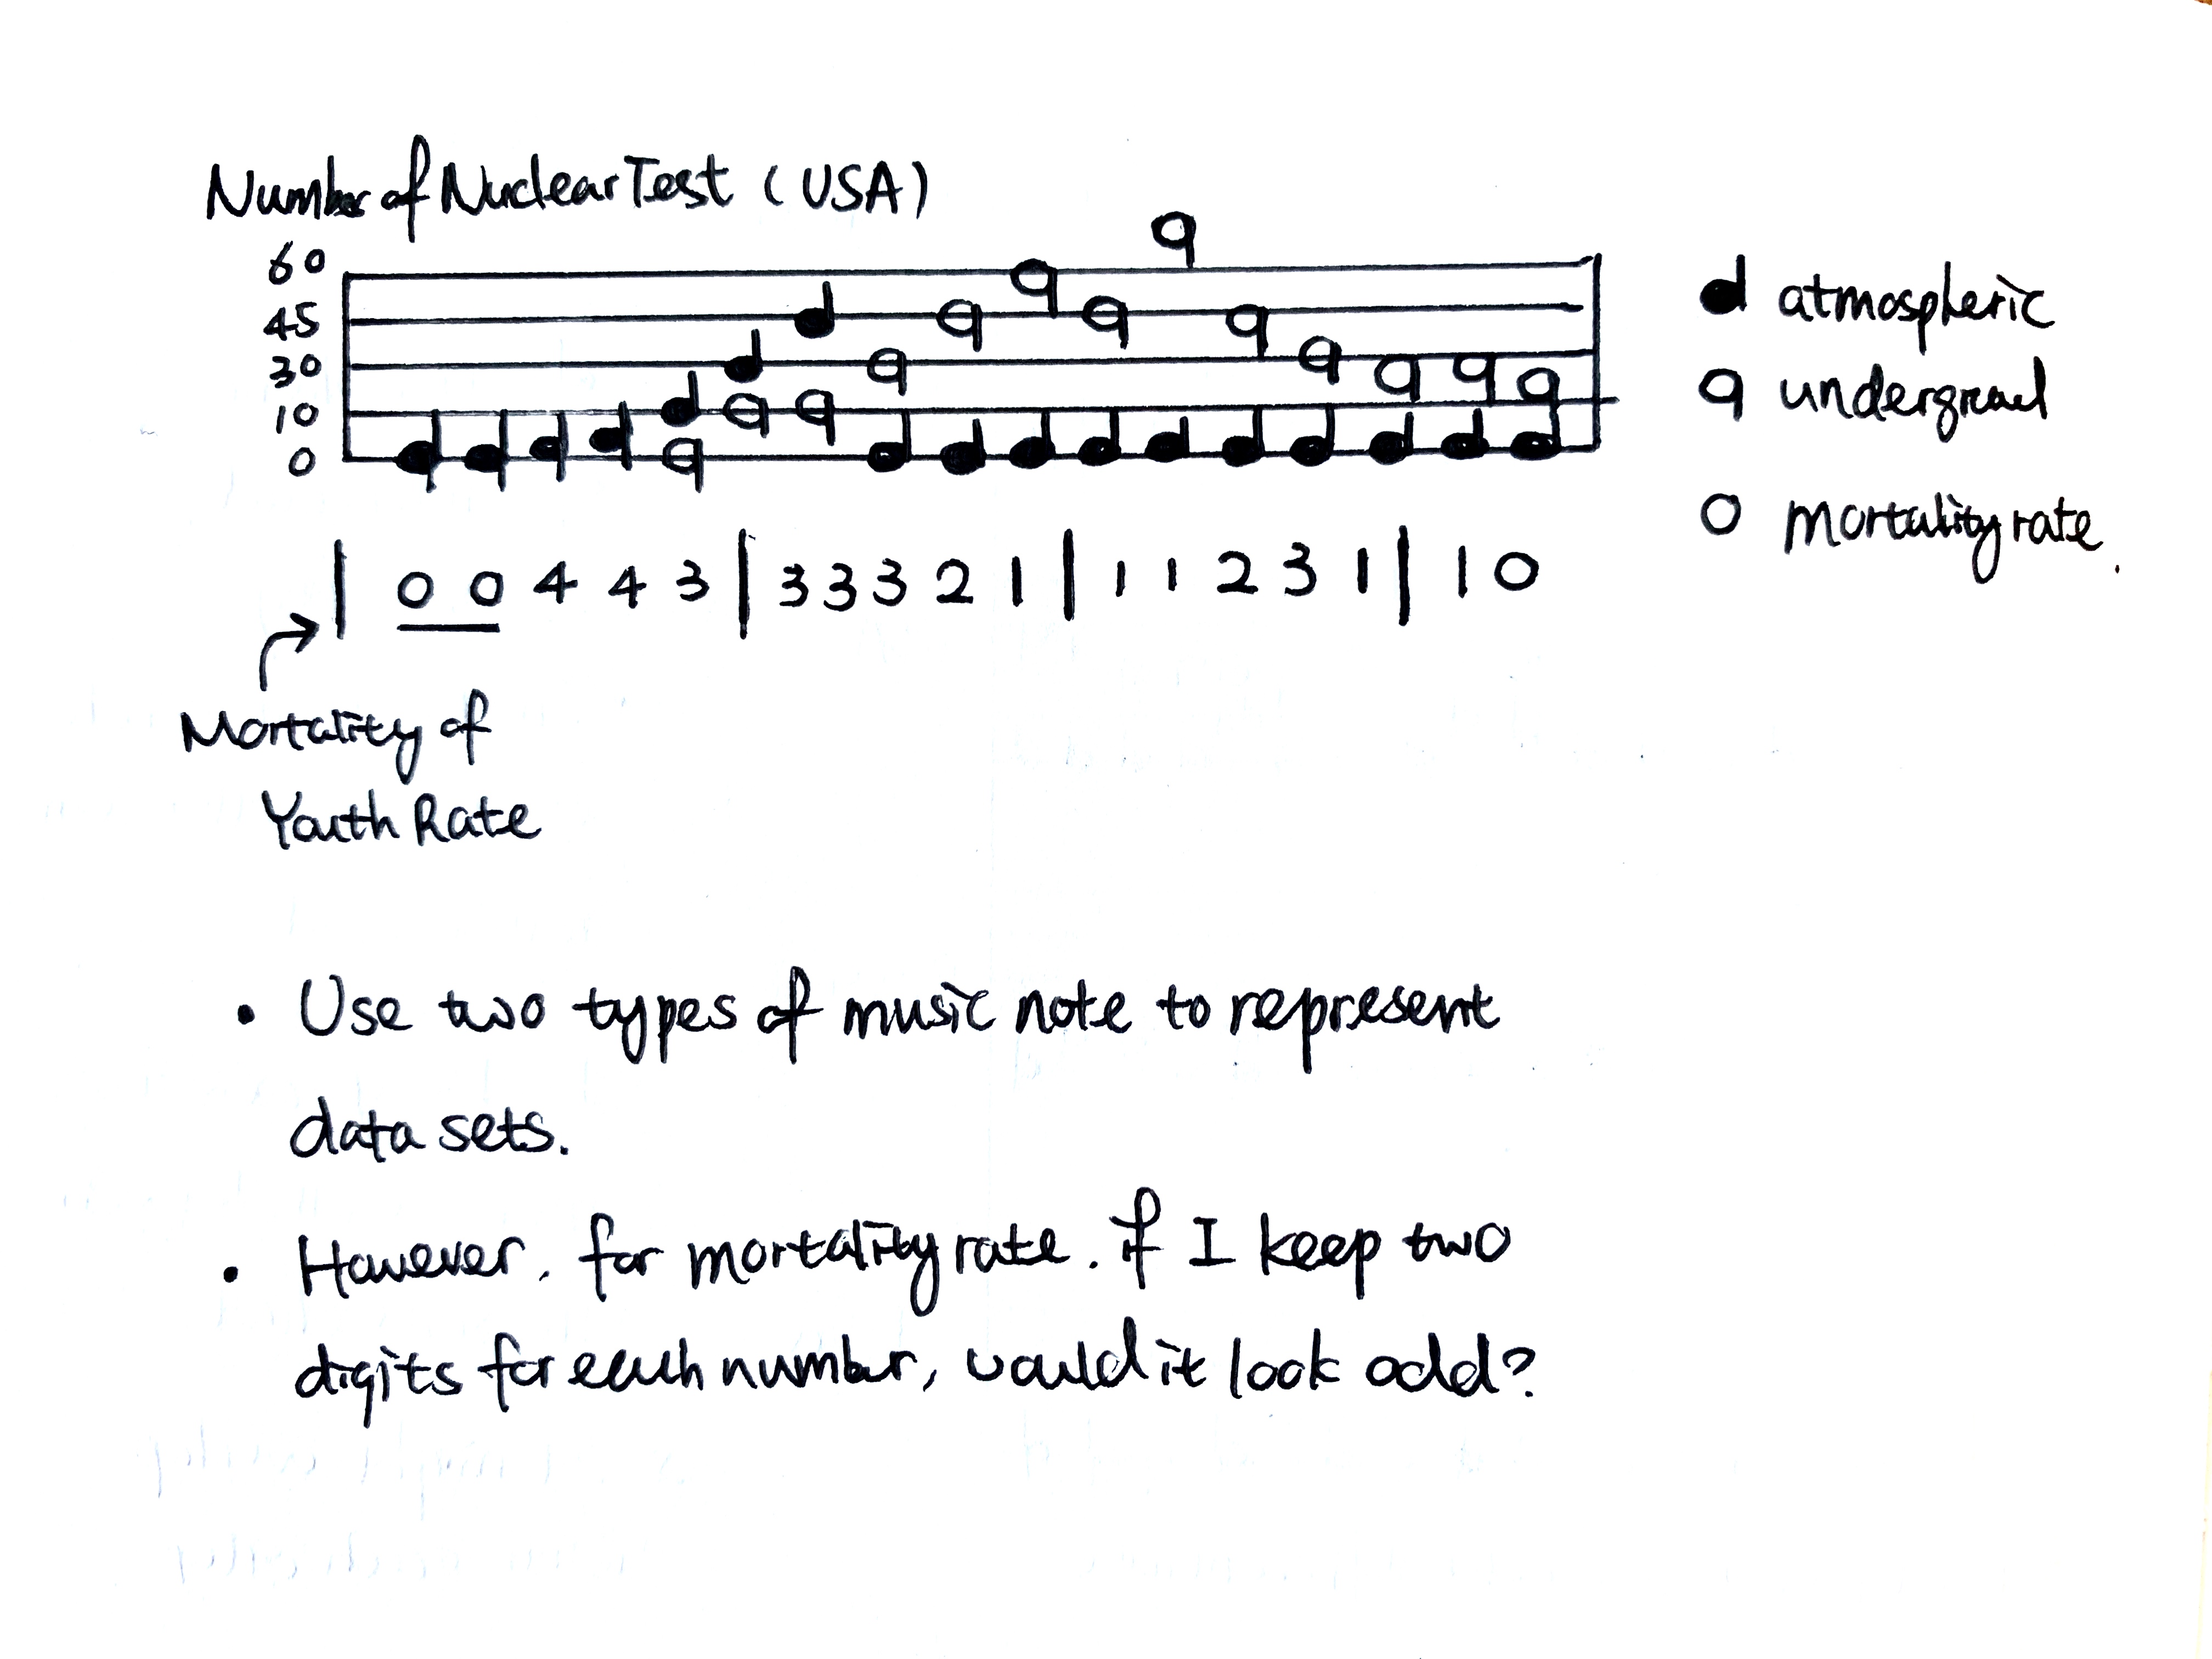 Number of Nuclear Test (USA)
60
45
30
10
0
atmospheric
undergraul
mortality rate.
| 0 0 4 4 3 | 3 3 3 2 1 | 1 1 2 3 1 | 1 0
Mortality of
Youth Rate
• Use two types of music note to represent
data sets.
• However. for mortality rate. if I keep two
digits for each number, would it look odd?